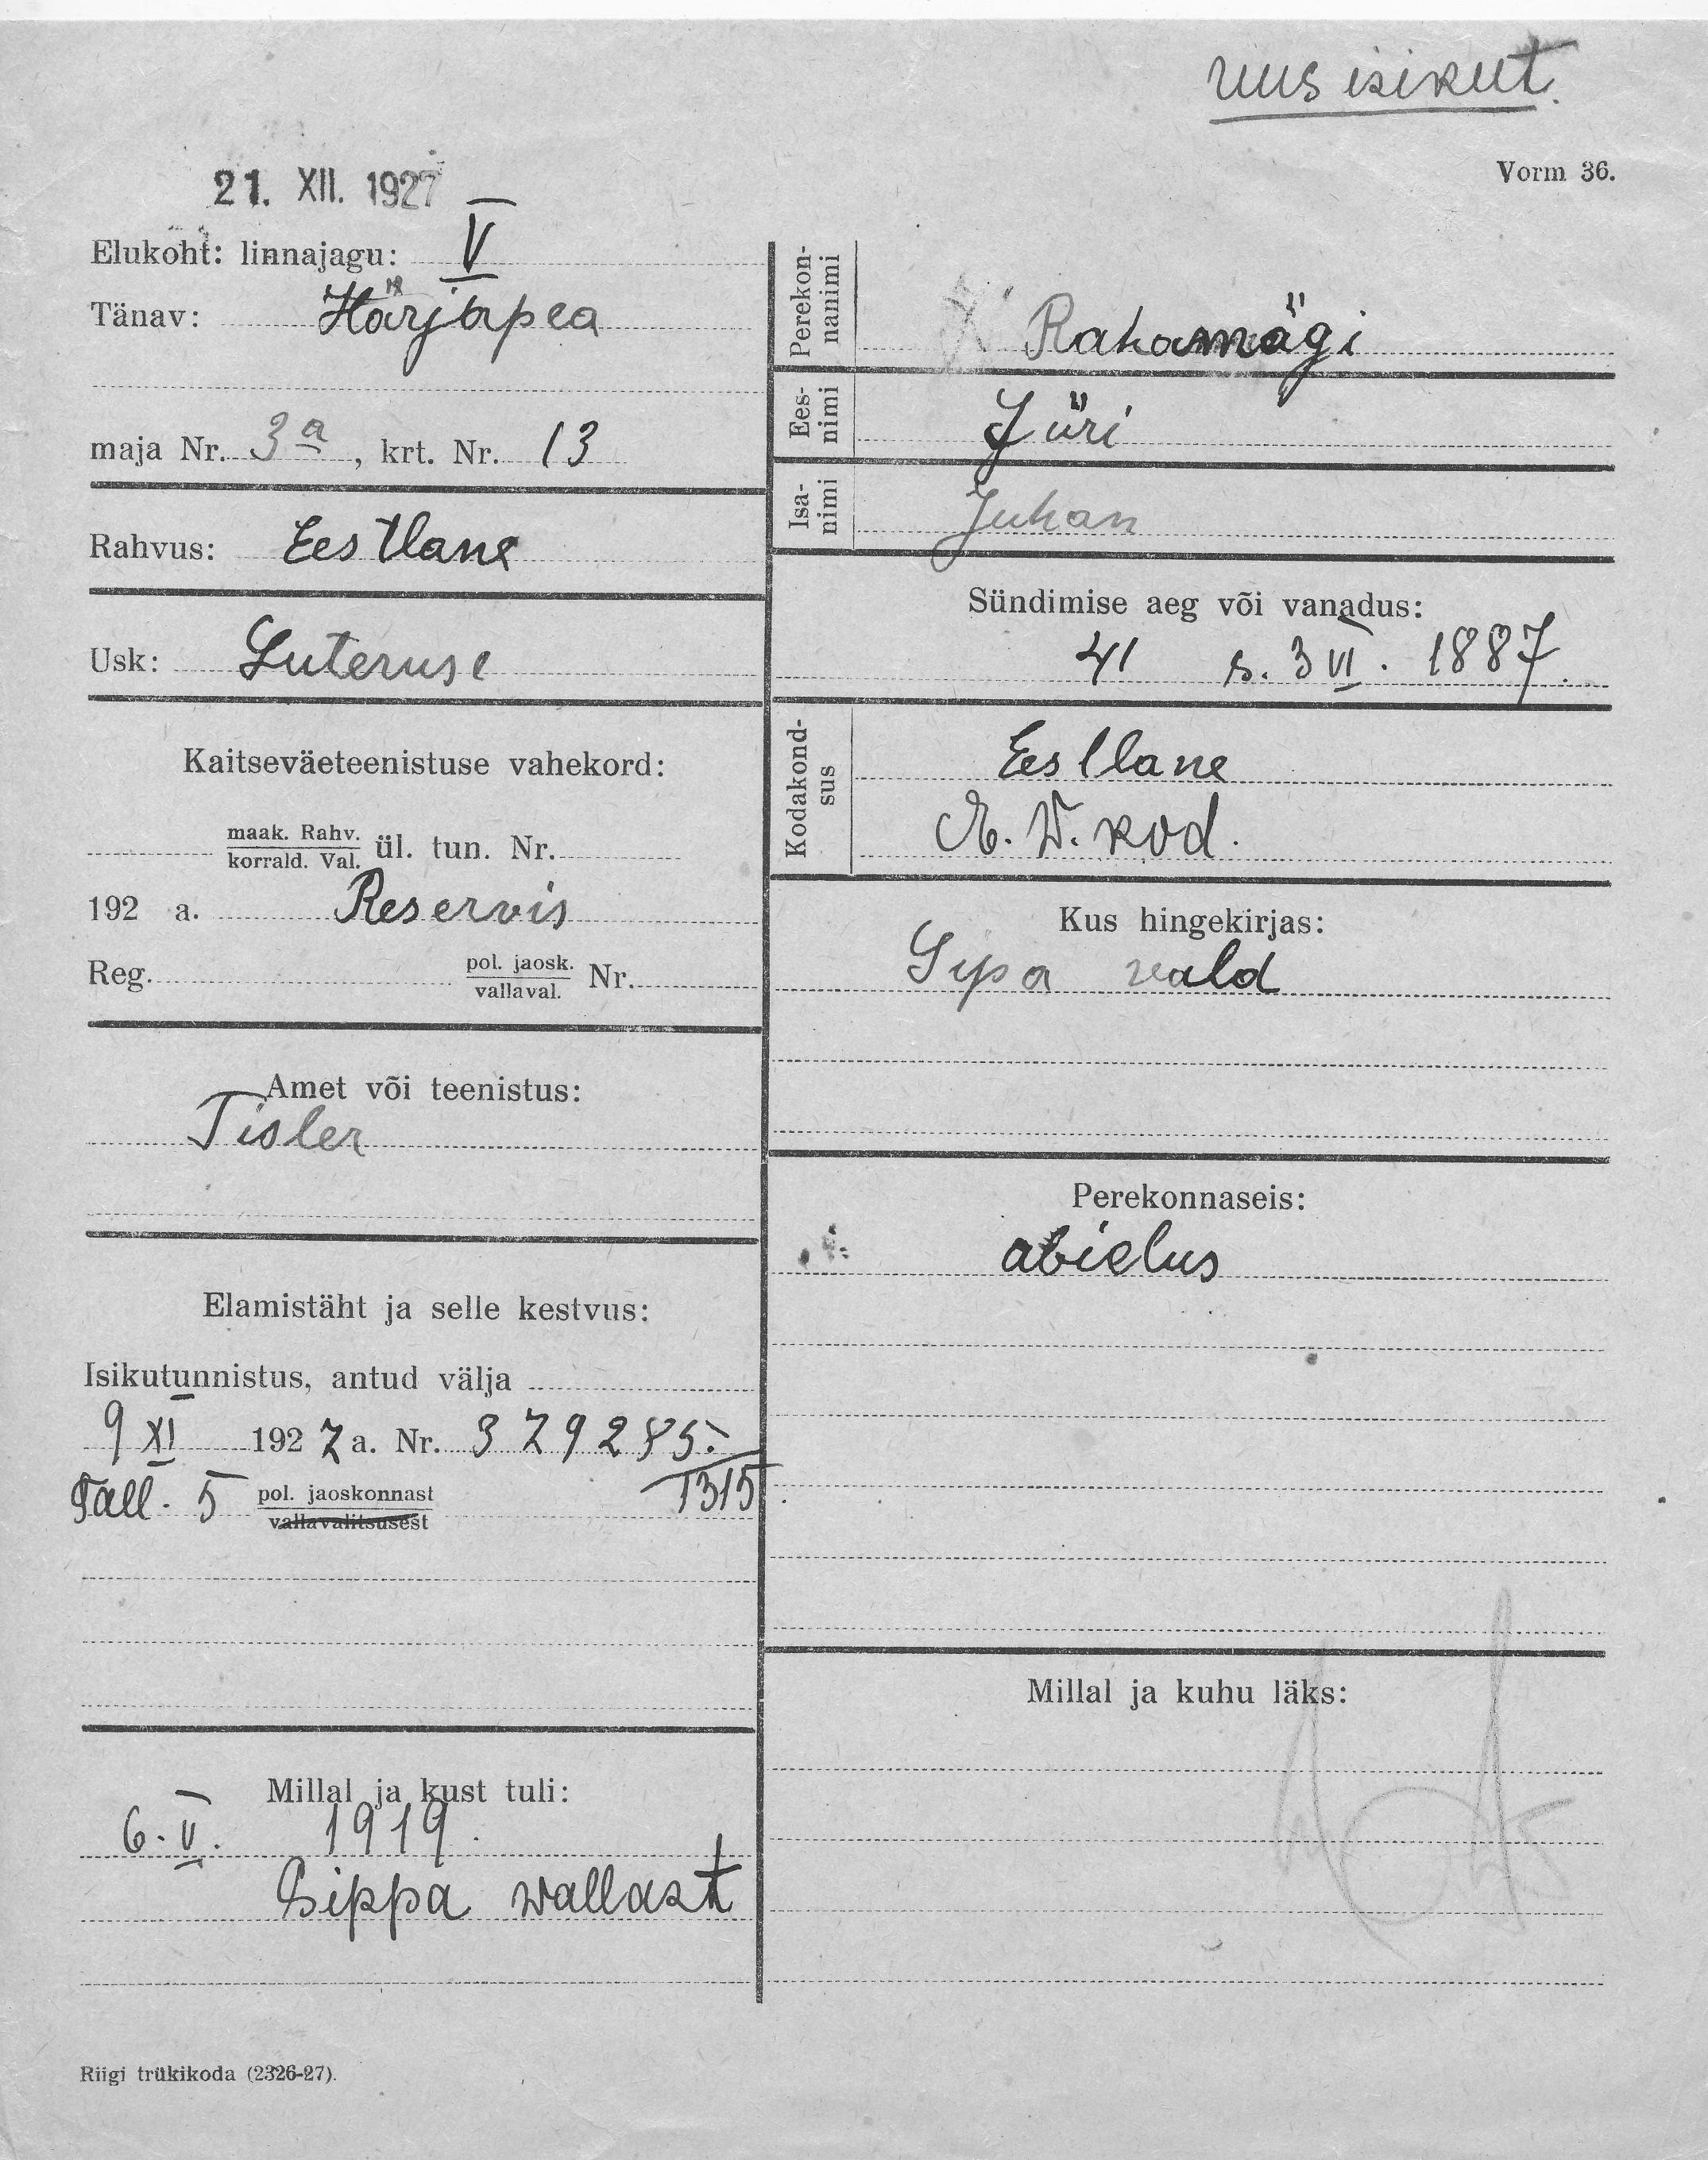 uus isikut.
Vorm 36.
21. XII. 1927
Elukoht: linnajagu: V
Tänav: Härjapea
maja Nr. 3a, krt. Nr. 13
Rahvus: Eestlane
Usk: Luteruse
Kaitseväeteenistuse vahekord:
maak. Rahv.
korrald. Val. ül. tun. Nr.
192 a. Reservis
Reg. pol. jaosk. Nr.
vallaval.
Amet või teenistus:
Tisler
Elamistäht ja selle kestvus:
Isikutunnistus, antud välja
9 XI 1927 a. Nr. 379285.
Tall. 5 pol. jaoskonnast 1315
vallavalitsusest
Millal ja kust tuli:
6. V. 1919.
Sippa wallast
Perekon-
nanimi Rahamägi
Ees-
nimi Jüri
Isa-
nimi Juhan
Sündimise aeg või vanadus:
41 s. 3 VI. 1887.
Kodakond-
sus Eestlane
E. W. kod.
Kus hingekirjas:
Sipa vald
Perekonnaseis:
abielus
Millal ja kuhu läks:
Riigi trükikoda (2326-27).